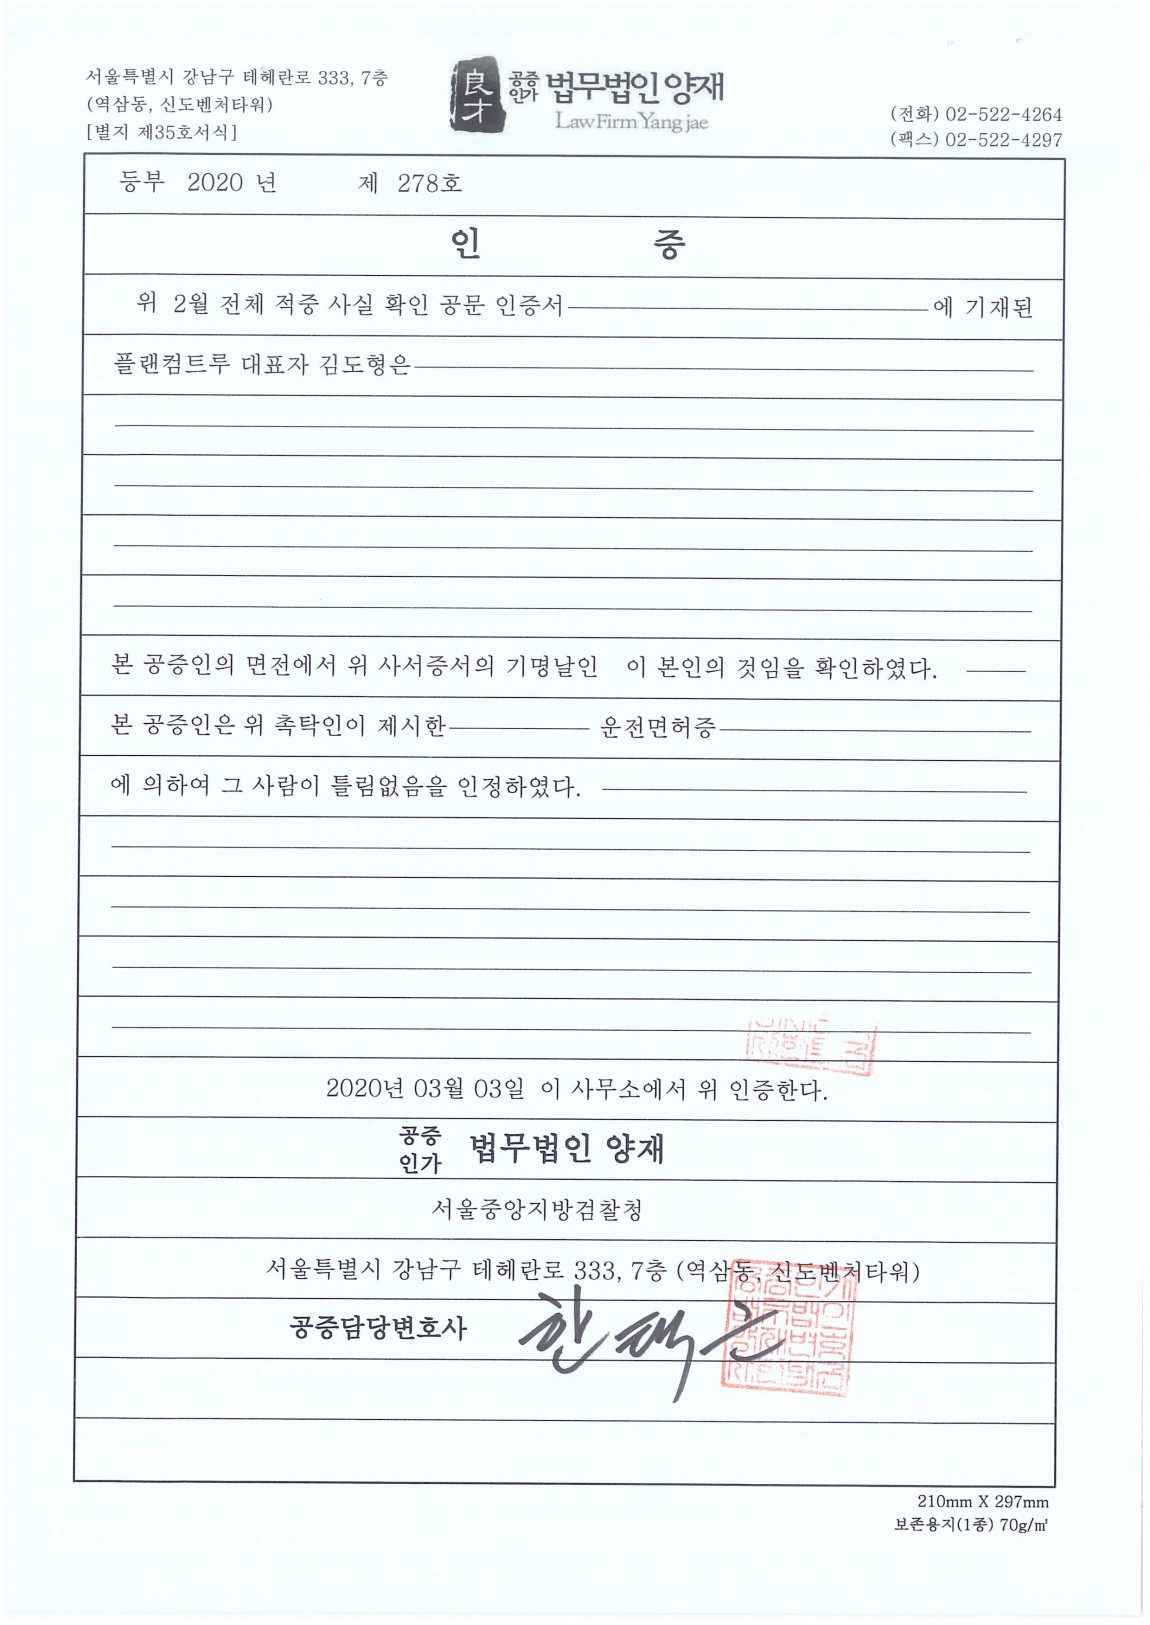 서울특별시 강남구 테헤란로 333, 7층
(역삼동, 신도벤처타워)
[별지 제35호서식]
良才
공증인가 법무법인 양재
Law Firm Yang jae
(전화) 02-522-4264
(팩스) 02-522-4297
등부 2020 년 제 278호
인 증
위 2월 전체 적중 사실 확인 공문 인증서 에 기재된
플랜컴트루 대표자 김도형은
본 공증인의 면전에서 위 사서증서의 기명날인 이 본인의 것임을 확인하였다.
본 공증인은 위 촉탁인이 제시한 운전면허증
에 의하여 그 사람이 틀림없음을 인정하였다.
2020년 03월 03일 이 사무소에서 위 인증한다.
공증인가 법무법인 양재
서울중앙지방검찰청
서울특별시 강남구 테헤란로 333, 7층 (역삼동, 신도벤처타워)
공증담당변호사 한택근
210mm X 297mm
보존용지(1종) 70g/㎡